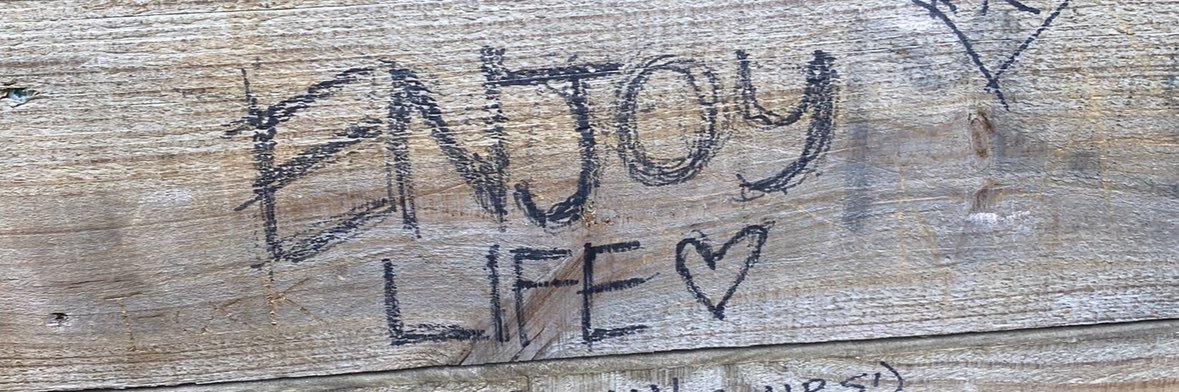 ENJOY
LIFE ♡